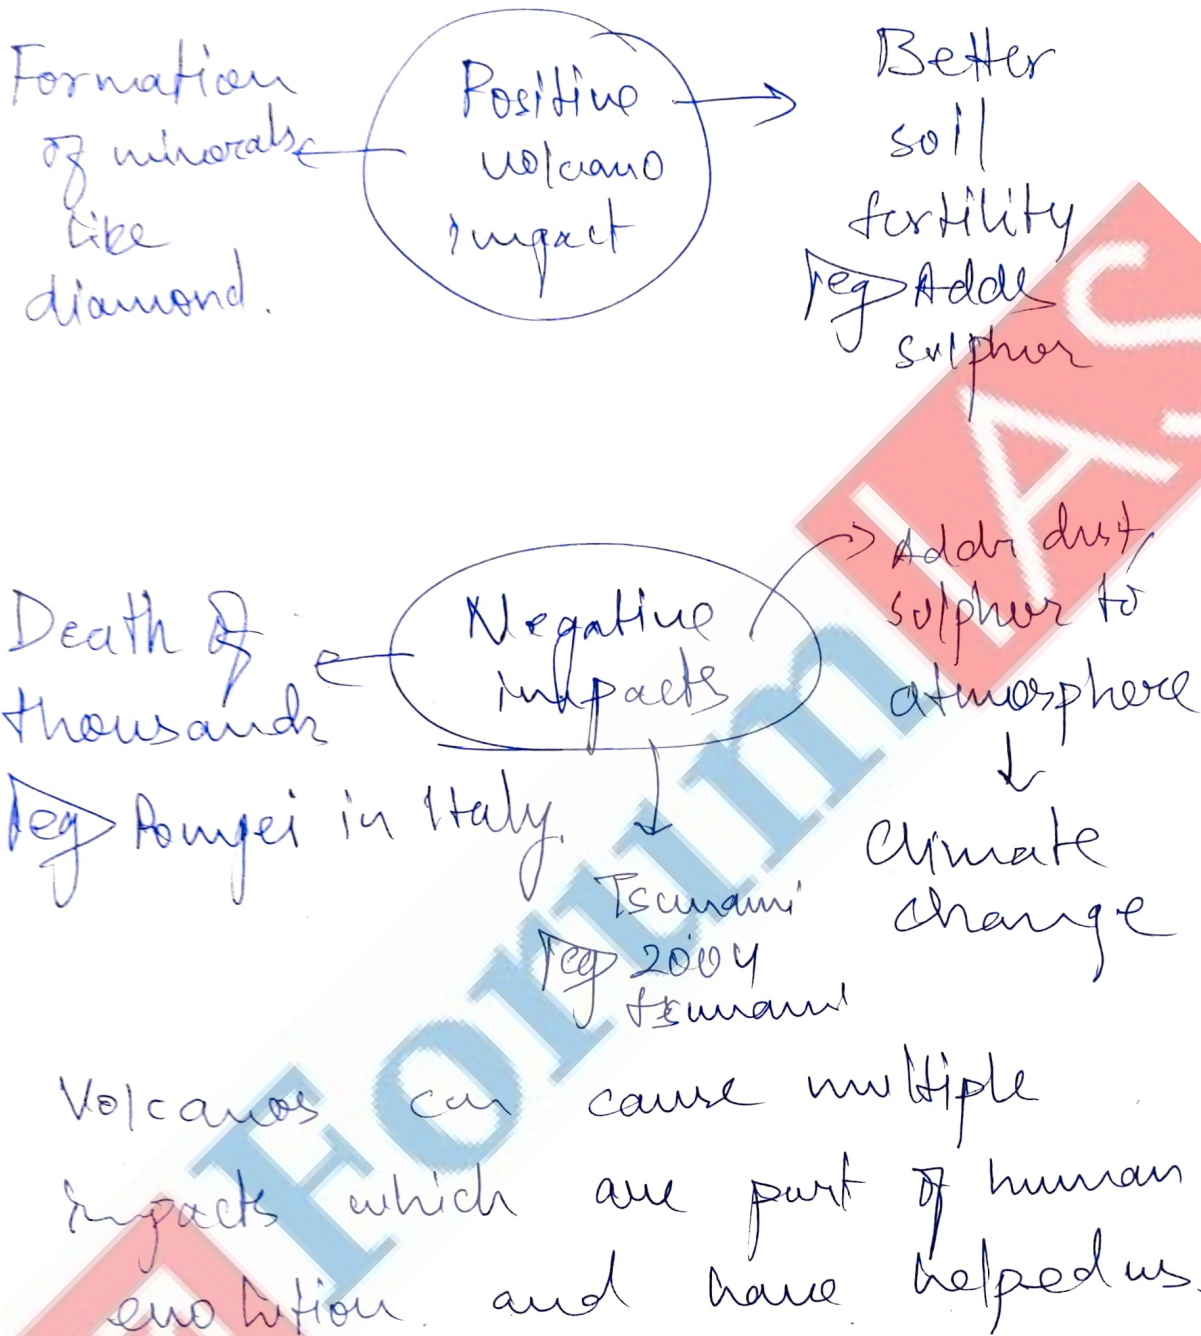 Formation
of minerals
like
diamond.
Positive
volcano
impact
Better
soil
fertility
eg Adds
sulphur
Death of
thousands
eg Pompei in Italy.
Negative
impacts
Adds dust,
sulphur to
atmosphere
↓
Climate
change
Tsunami
eg 2004
tsunami
Volcanos can cause multiple
impacts which are part of human
evolution. and have helped us.
Forum IAS